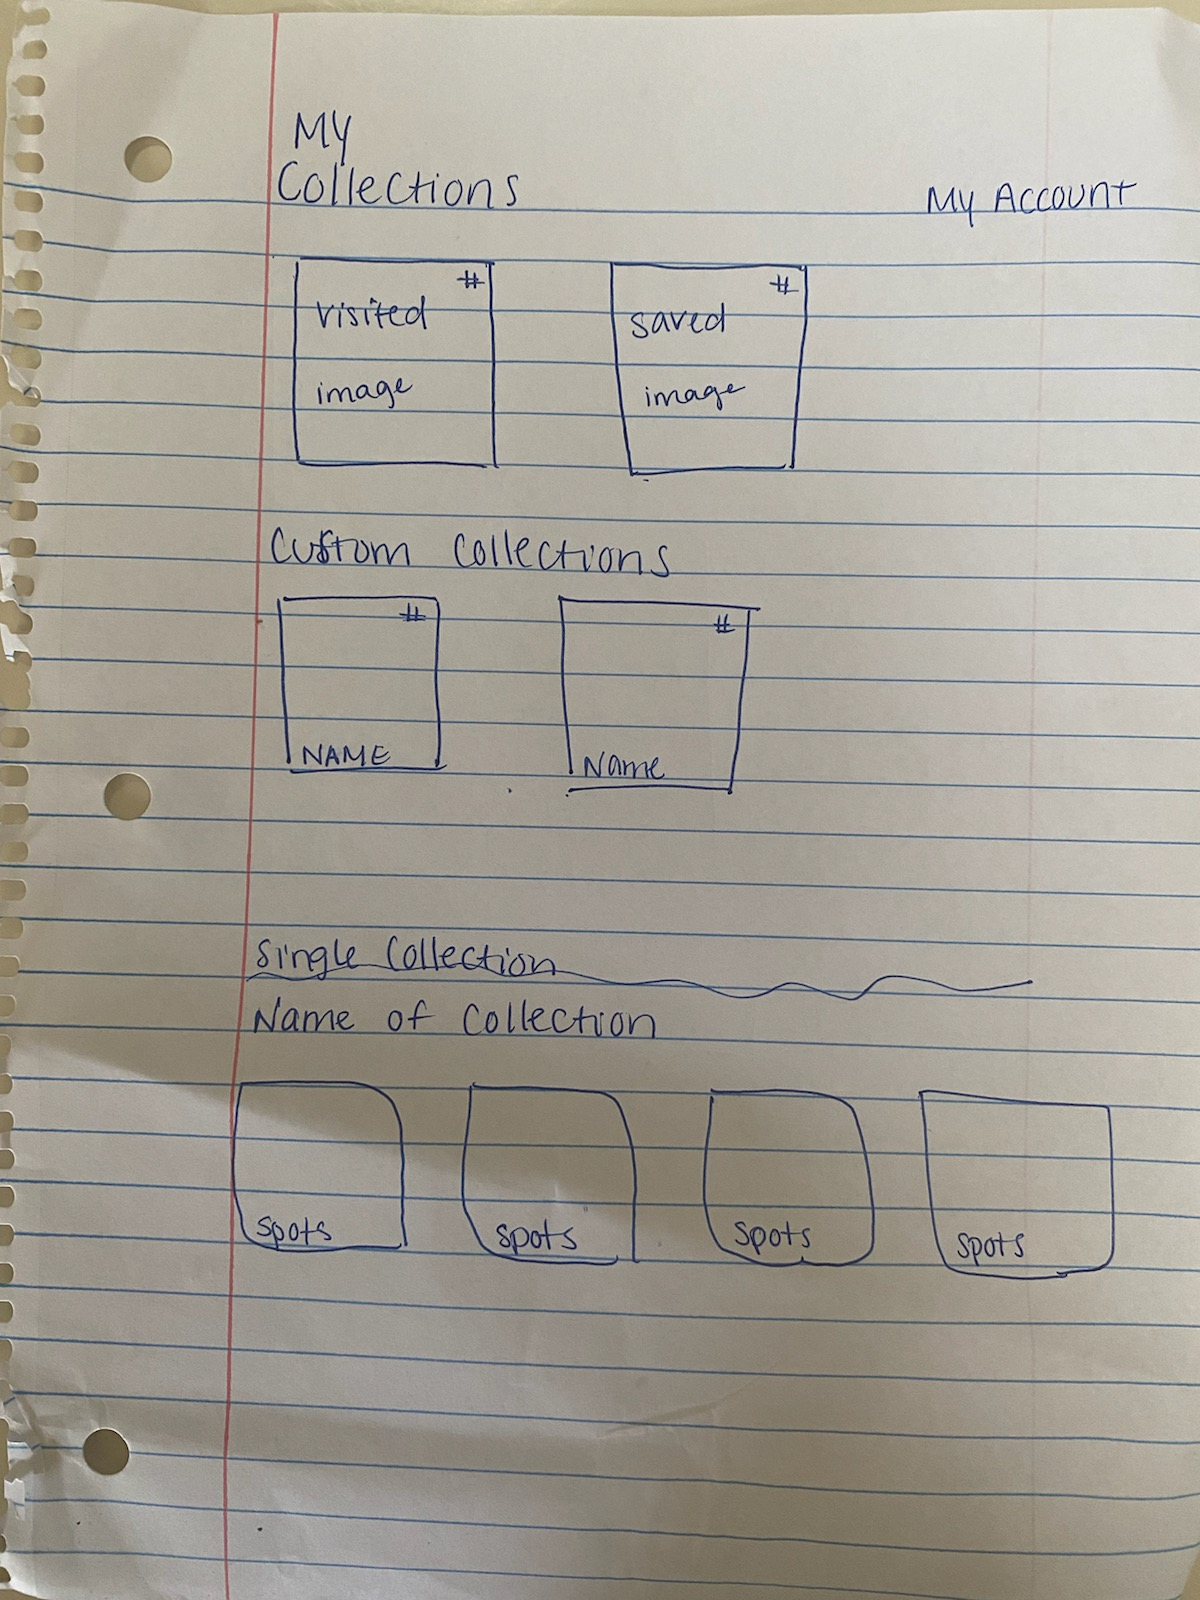 My
Collections
My Account
#
#
visited
saved
image
image
Custom Collections
#
#
NAME
Name
Single Collection
Name of Collection
spots
spots
spots
spots